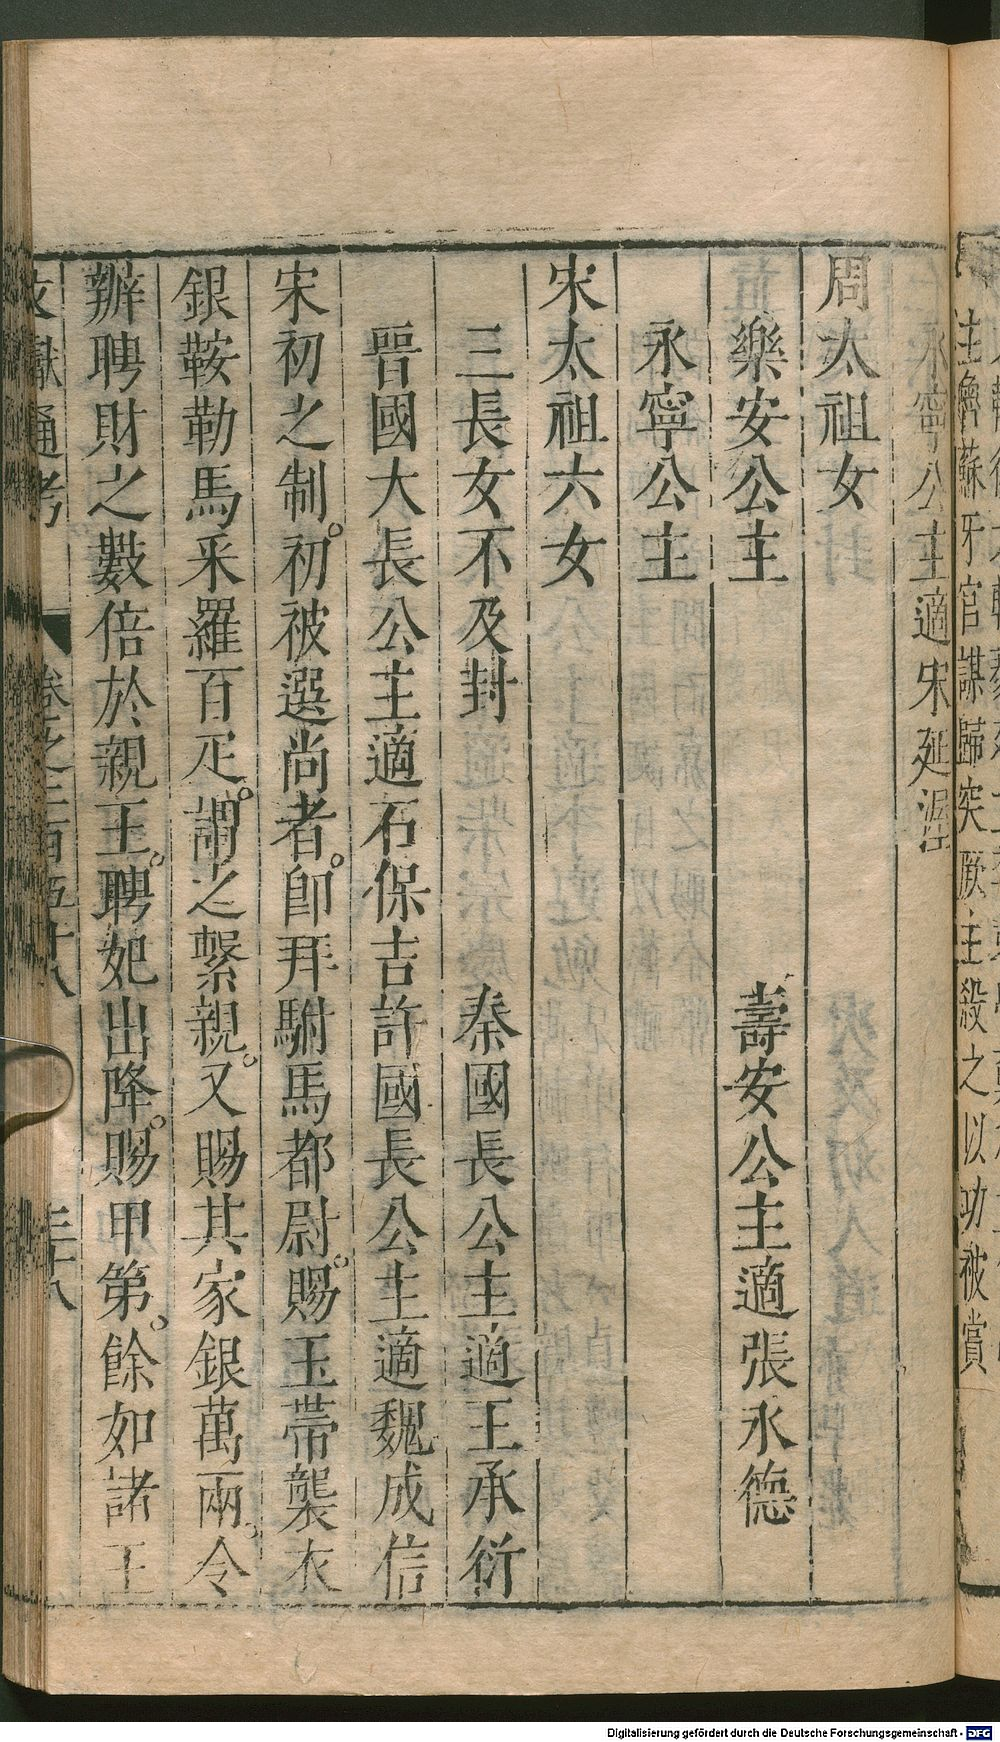 永寧公主適宋延渥
周太祖女
樂安公主 壽安公主適張永德
永寧公主
宋太祖六女
三長女不及封 秦國長公主適王承衍
晉國大長公主適石保吉許國長公主適魏咸信
宋初之制。初被選尚者。卽拜駙馬都尉。賜玉帶襲衣
銀鞍勒馬采羅百疋。謂之繫親。又賜其家銀萬兩。令
辦聘財之數倍於親王。聘妃出降。賜甲第。餘如諸王
文獻通考 卷之二百五十八 三十八
主詹蘇牙官謀歸突厥主殺之以功被賞
Digitalisierung gefördert durch die Deutsche Forschungsgemeinschaft - DFG